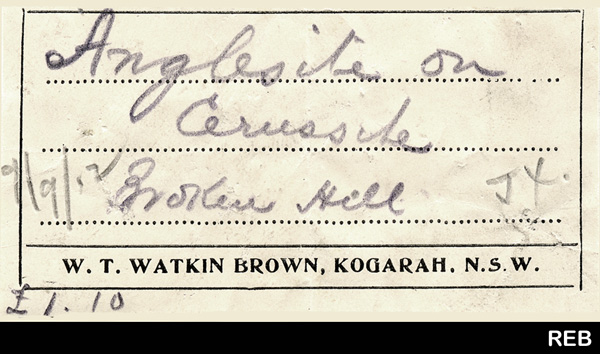 Anglesite on
Cerussite
Broken Hill
W. T. WATKIN BROWN, KOGARAH, N.S.W.
£1.10
REB